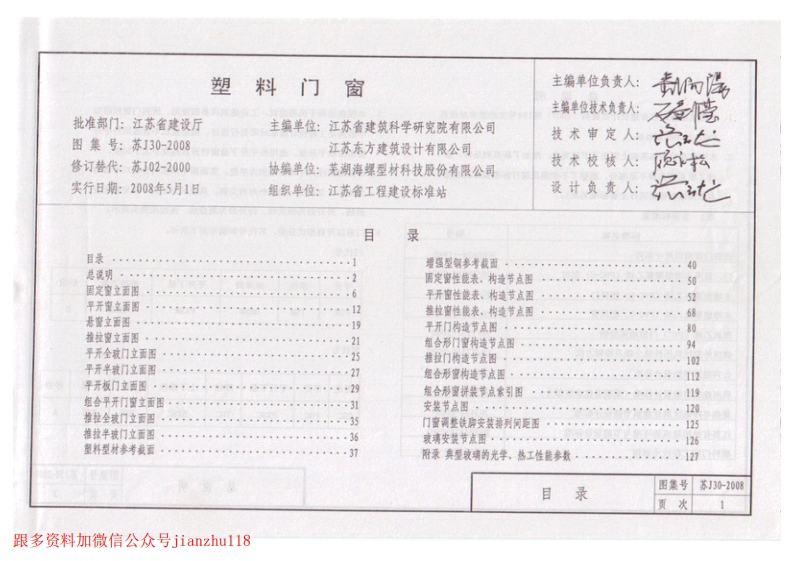 塑料门窗
批准部门：江苏省建设厅
图集号：苏J30-2008
修订替代：苏J02-2000
实行日期：2008年5月1日
主编单位：江苏省建筑科学研究院有限公司
江苏东方建筑设计有限公司
协编单位：芜湖海螺型材科技股份有限公司
组织单位：江苏省工程建设标准站
主编单位负责人：
主编单位技术负责人：
技术审定人：
技术校核人：
设计负责人：
目 录
目录 1
总说明 2
固定窗立面图 6
平开窗立面图 12
悬窗立面图 19
推拉窗立面图 21
平开全玻门立面图 25
平开半玻门立面图 27
平开板门立面图 29
组合平开门窗立面图 31
推拉全玻门立面图 35
推拉半玻门立面图 36
塑料型材参考截面 37
增强型钢参考截面 40
固定窗性能表、构造节点图 50
平开窗性能表、构造节点图 52
推拉窗性能表、构造节点图 68
平开门构造节点图 80
组合形门窗构造节点图 94
推拉门构造节点图 102
组合形窗构造节点图 112
组合形窗拼装节点索引图 119
安装节点图 120
门窗调整铁脚安装排列间距图 125
玻璃安装节点图 126
附录 典型玻璃的光学、热工性能参数 127
目 录
图集号 苏J30-2008
页次 1
跟多资料加微信公众号jianzhu118